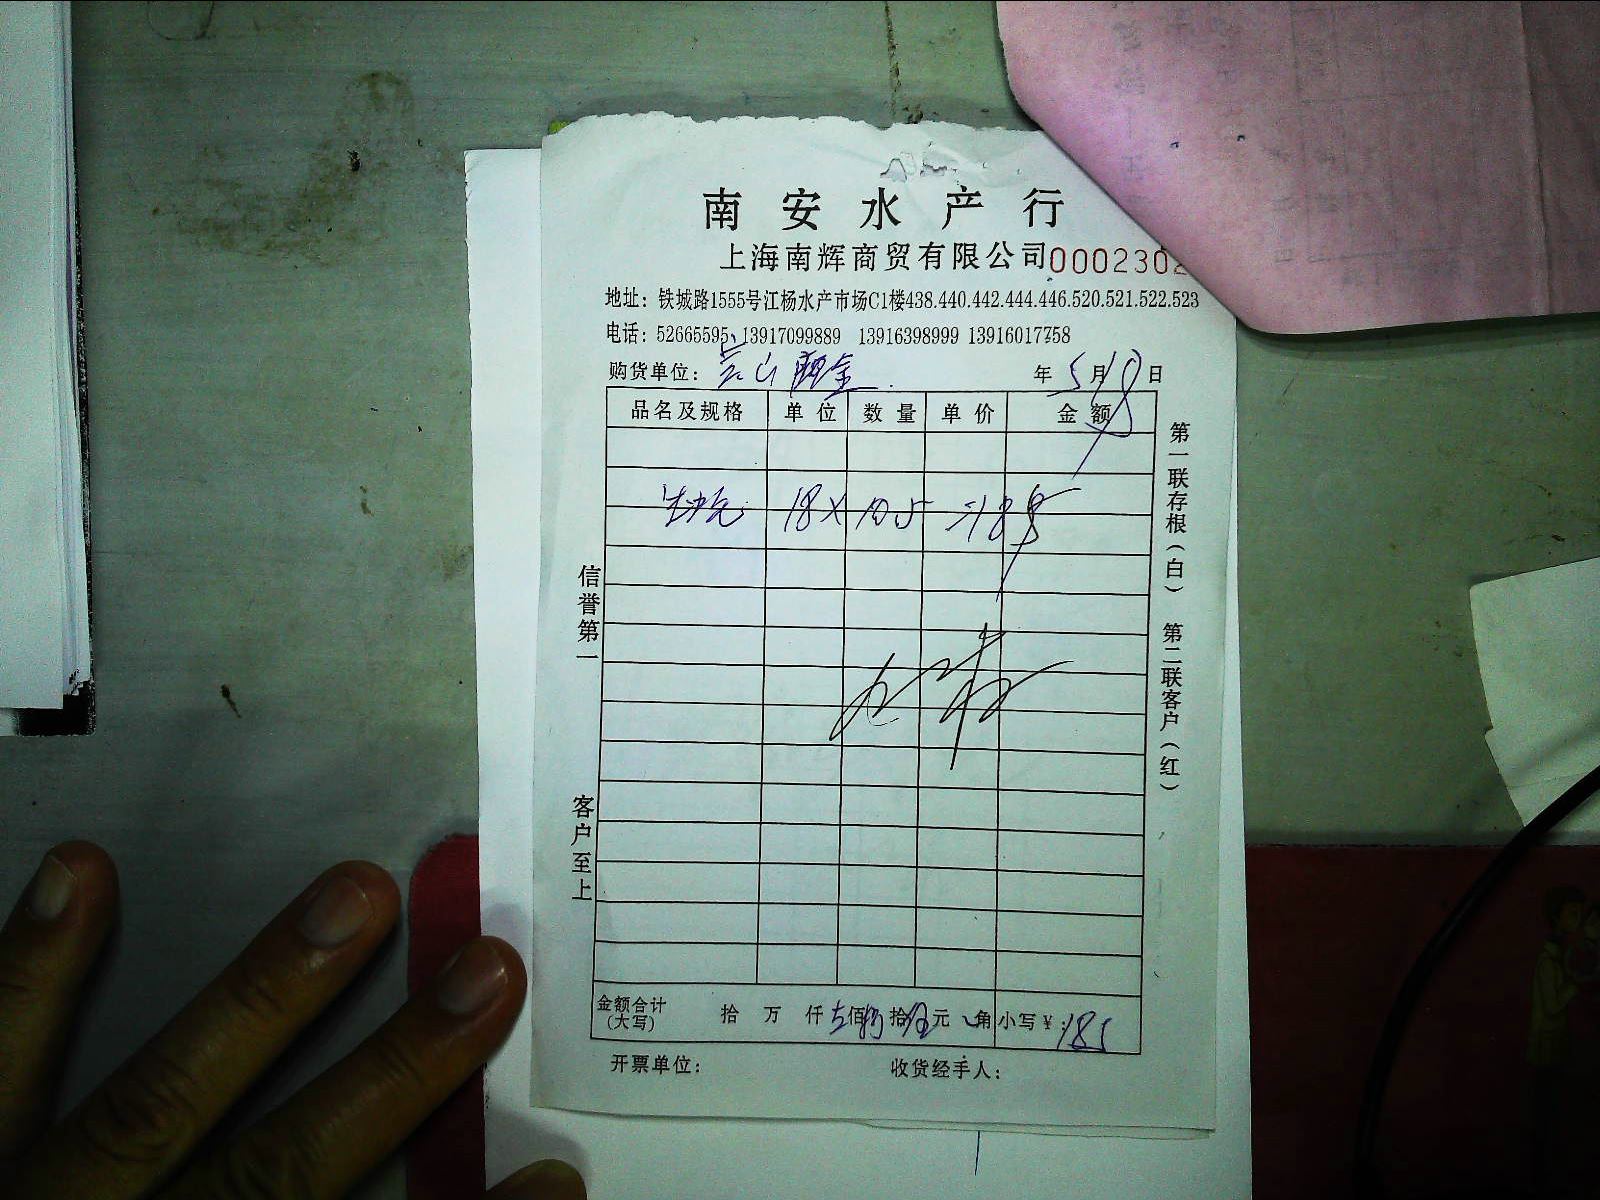 南安水产行
上海南辉商贸有限公司 000230
地址：铁城路1555号江杨水产市场C1楼438.440.442.444.446.520.521.522.523
电话：52665595、13917099889 13916398999 13916017758
购货单位： 年 5月18日
品名及规格 单位 数量 单价 金额
18 X 10.5 =189
信誉第一
客户至上
第一联存根（白） 第二联客户（红）
金额合计（大写） 拾 万 仟 佰 拾 元 角 小写¥：185
开票单位： 收货经手人：